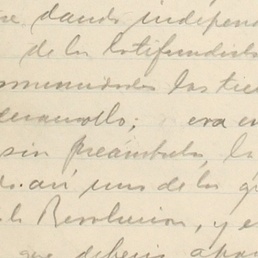 dando indepen
de los latifundist
omunidades las tie
desarrollo; era e
sin preámbulo, l
así uno de los g
la Revolucion, y e
que debería